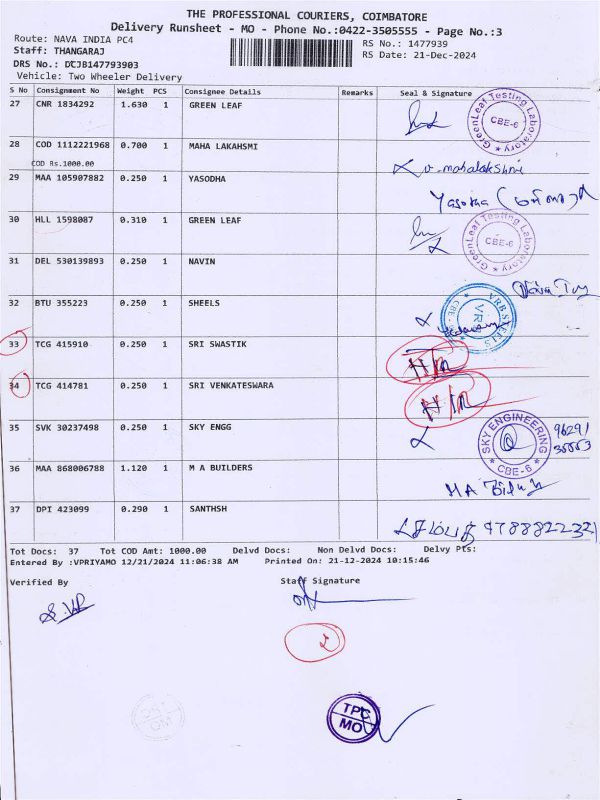 THE PROFESSIONAL COURIERS, COIMBATORE
Delivery Runsheet - MO - Phone No.:0422-3505555 - Page No.:3
Route: NAVA INDIA PC4 RS No.: 1477939
Staff: THANGARAJ RS Date: 21-Dec-2024
DRS No.: DCJB147793903
Vehicle: Two Wheeler Delivery
S No Consignment No Weight PCS Consignee Details Remarks Seal & Signature
27 CNR 1834292 1.630 1 GREEN LEAF GreenLeaf Testing Laboratory CBE-6
28 COD 1112221968 0.700 1 MAHA LAKAHSMI
COD Rs.1000.00 v. mahalakshmi
29 MAA 105907882 0.250 1 YASODHA Yasotha
30 HLL 1598087 0.310 1 GREEN LEAF GreenLeaf Testing Laboratory CBE-6
31 DEL 530139893 0.250 1 NAVIN
32 BTU 355223 0.250 1 SHEELS
33 TCG 415910 0.250 1 SRI SWASTIK
34 TCG 414781 0.250 1 SRI VENKATESWARA
35 SVK 30237498 0.250 1 SKY ENGG SKY ENGINEERING CBE-6
36 MAA 868006788 1.120 1 M A BUILDERS
37 DPI 423099 0.290 1 SANTHSH
Tot Docs: 37 Tot COD Amt: 1000.00 Delvd Docs: Non Delvd Docs: Delvy Pts:
Entered By :VPRIYAMO 12/21/2024 11:06:38 AM Printed On: 21-12-2024 10:15:46
Verified By Staff Signature
TPC
MO